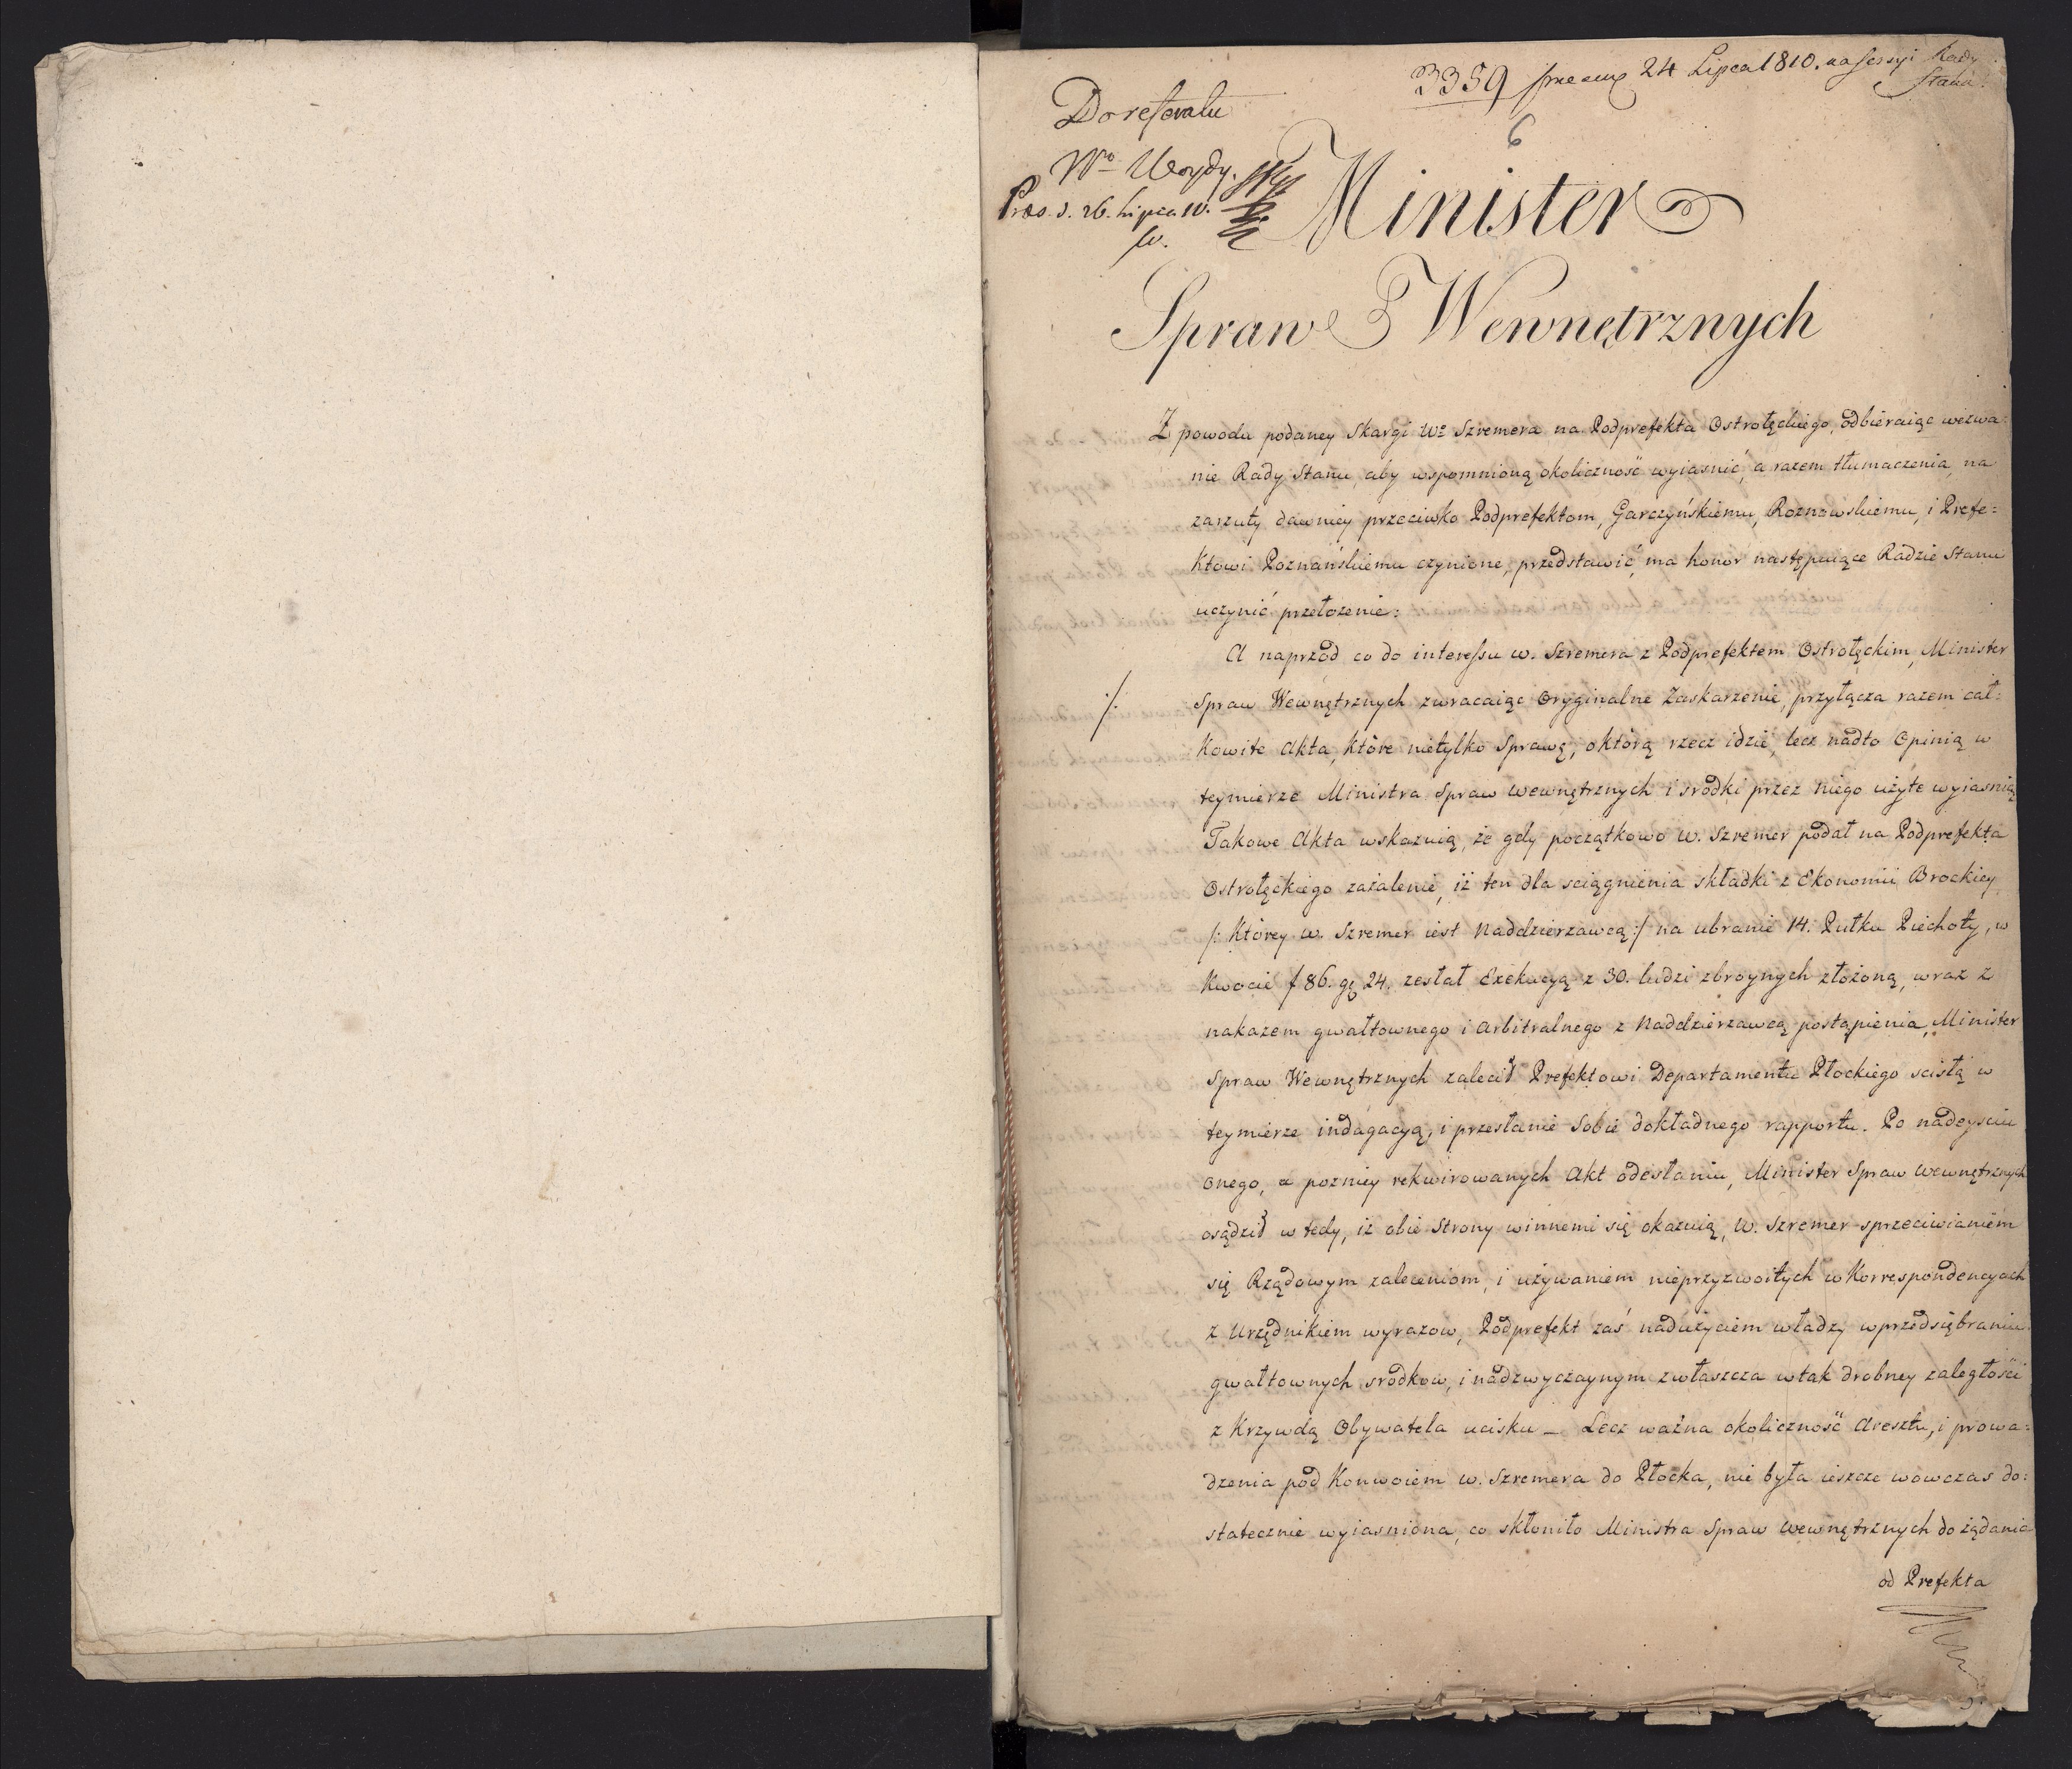 3359 24 Lipca 1810. na sessyi Rady
Stanu.
Do reserwatu
Wo
26. Lipca 10.
w.
6
Minister
Spraw Wewnętrznych
Z powodu podaney Skargi Wo Szremera na Podprefekta Ostrołęckiego, odbieraiąc wezwa-
nie Rady Stanu, aby wspomnioną okoliczność wyiasnić, a razem tłumaczenia, na
zarzuty dawniey przeciwko Podprefektom, Garczyńskiemu, Roznowskiemu, i Prefe=
ktowi Poznańskiemu czynione, przedstawić, ma honor następuiące Radzie Stanu
uczynić przełożenie:
A naprzód co do interessu w. Szremera z Podprefektem Ostrołęckim, Minister
/: Spraw Wewnętrznych zwracaiąc Oryginalne Zaskarzenie, przyłącza razem cał=
kowite Akta, które nietylko Sprawę, o którą rzecz idzie, lecz nadto Opinią w
teymierze Ministra Spraw Wewnętrznych i srodki przez niego użyte wyiasnią
Takowe Akta wskazuią, że gdy początkowo w. Szremer podał na Podprefekta
Ostrołęckiego zażalenie, iż ten dla sciągnienia składki z Ekonomii Brockiey
/: Którey w. Szremer iest Naddzierzawcą :/ na ubranie 14. Pułku Piechoty, w
Kwocie f 86. gę 24. zesłał Exekucyą z 30. ludzi zbroynych złożoną, wraz z
nakazem gwałtownego i arbitralnego z Naddzierzawcą postąpienia, Minister
Spraw Wewnętrznych zalecił Prefektowi Departamentu Płockiego scisłą w
teymierze indagacyą, i przesłanie Sobie dokładnego rapportu. Po nadeyściu
onego, a pozniey rekwirowanych Akt odesłaniu, Minister Spraw Wewnętrznych
osądził w tedy, iż obie Strony winnemi się okazuią, W. Szremer sprzeciwianiem
się Rządowym zaleceniom, i używaniem nieprzyzwoitych w Korrespondencyach
z Urzędnikiem wyrazow, Podprefekt zaś nadużyciem władzy w przedsiębraniu
gwałtownych srodkow, i nadzwyczaynym zwłaszcza w tak drobney zaległości
z Krzywdą Obywatela ucisku _ Lecz ważna okoliczność Aresztu, i prowa=
dzenia pod Konwoiem w. Szremera do Płocka, nie była ieszcze wowczas do=
statecznie wyiasniona, co skłoniło Ministra Spraw Wewnętrznych do żądania
od Prefekta